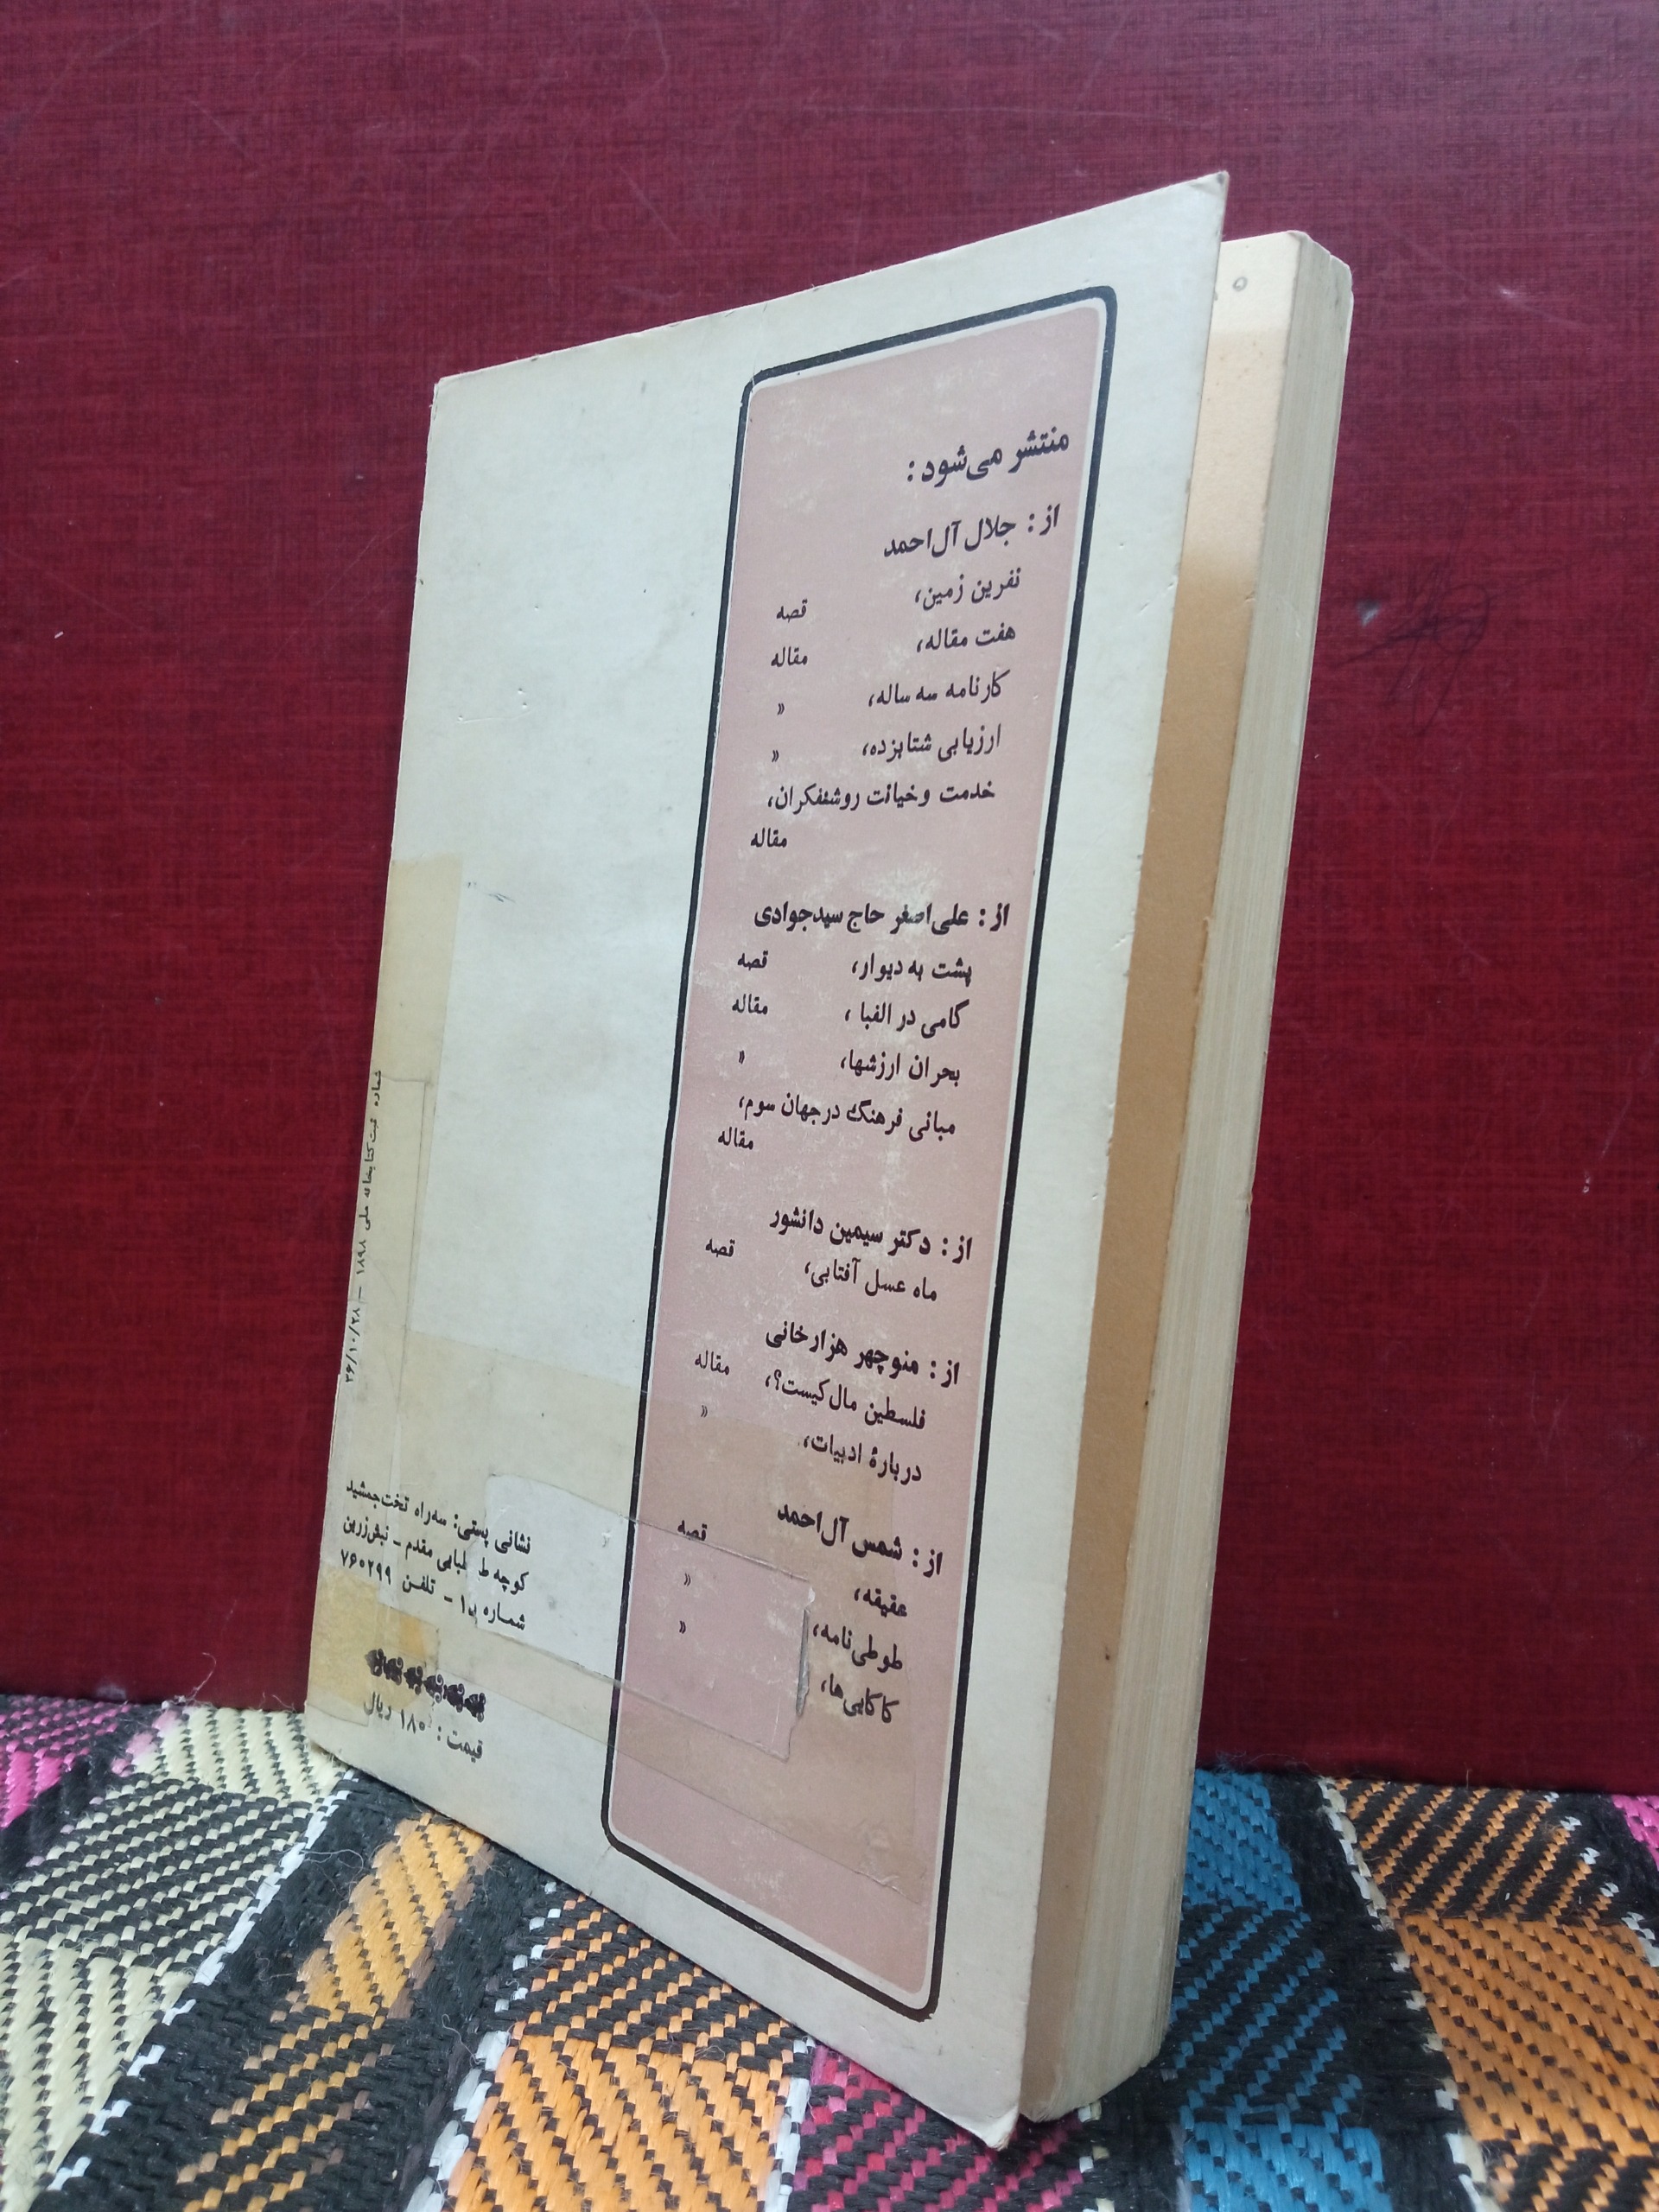 منتشر می‌شود :
از : جلال آل‌احمد
نفرین زمین، قصه
هفت مقاله، مقاله
کارنامه سه ساله، »
ارزیابی شتابزده، »
خدمت و خیانت روشنفکران،
مقاله
از : علی‌اصغر حاج سیدجوادی
پشت به دیوار، قصه
گامی در الفبا ، مقاله
بحران ارزشها، »
مبانی فرهنگ در جهان سوم،
مقاله
از : دکتر سیمین دانشور
ماه عسل آفتابی، قصه
از : منوچهر هزارخانی
فلسطین مال کیست؟، مقاله
دربارهٔ ادبیات، »
از : شمس آل‌احمد
عقیقه، قصه
طوطی‌نامه، »
کاکایی‌ها، »
شماره ثبت کتابخانه ملی ۱۸۹۸ — ۳۶/۱۰/۲۸
نشانی پستی: سه‌راه تخت‌جمشید
کوچه طباطبایی مقدم ـ نبش زرین
شماره ۱ ـ تلفن ۷۶۰۲۹۹
قیمت : ۱۸۰ ریال